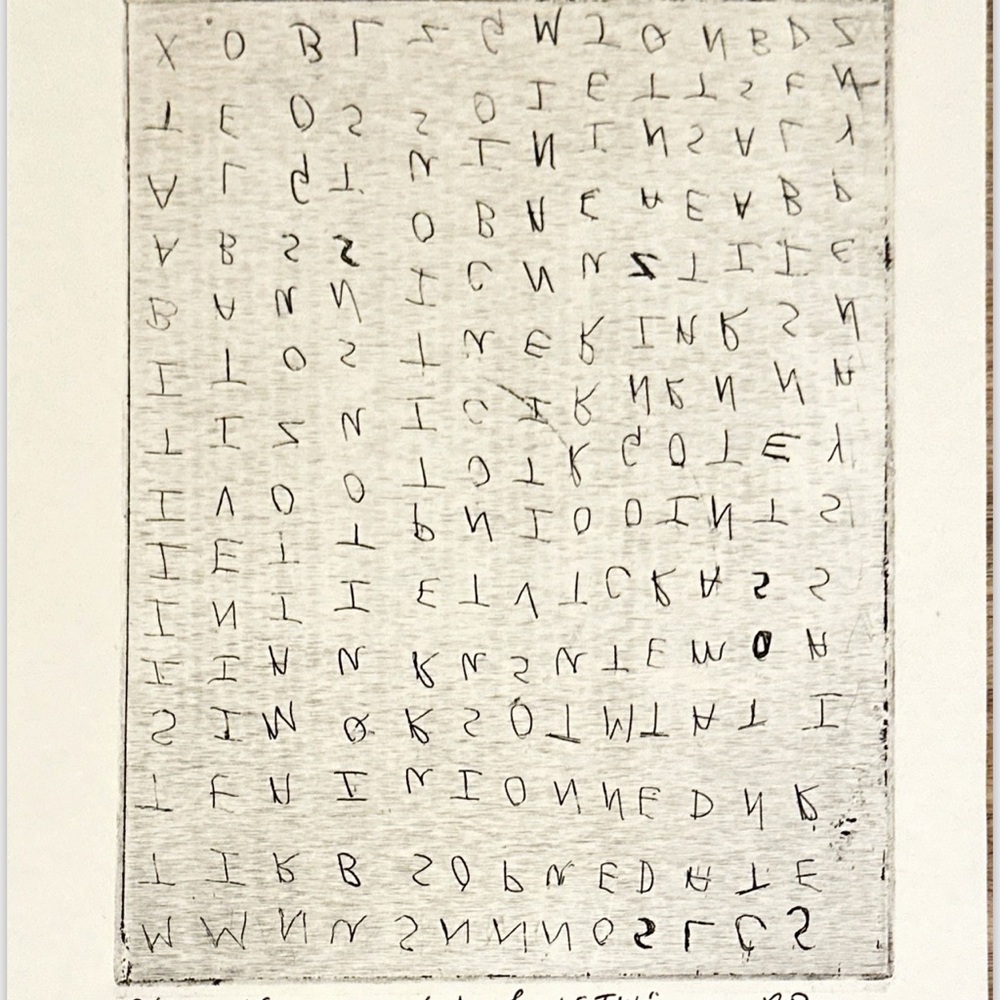 X O B L S G W I O N B D S
T E O S S O I E T T S F N
A L G T U I N I N S A L Y
A B S S O B N E A E A B P
B A U N I C N U S T I I E
I T O S T U E R I N R S N
T I S N I C I R N R N N A
I V O O T C T R G O T E Y
I E T T P N I O O I N T S
I N I I E T V T C R A S S
I I A N R N S U T E M O A
S I M Q R S O T M T A T I
T F A I U I O N N E D N R
T I R B S O P U E D A T E
M M N U S N N N N O S L C S